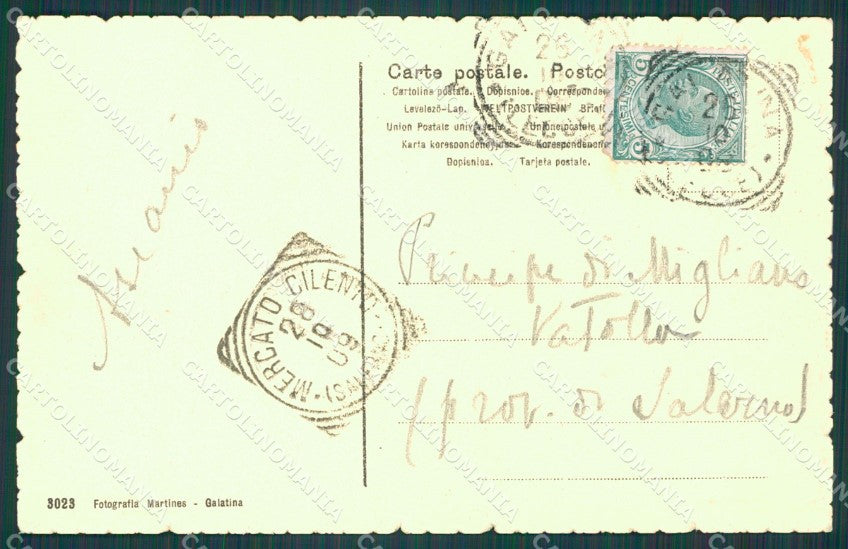 Carte postale. Postc
Cartolina postale. Dopisnice. Corresponden
Levelező-Lap. WELTPOSTVEREIN Brief
Union Postale universelle. Unione postale u
Karta korespondencyjna. Korespondenčn
Dopisnica. Tarjeta postale.
GALATINA
(LECCE)
Principe di Migliano
Vatolla
(prov. di Salerno)
MERCATO CILENTO
28
10
09
3023 Fotografia Martines - Galatina
CARTOLINOMANIA